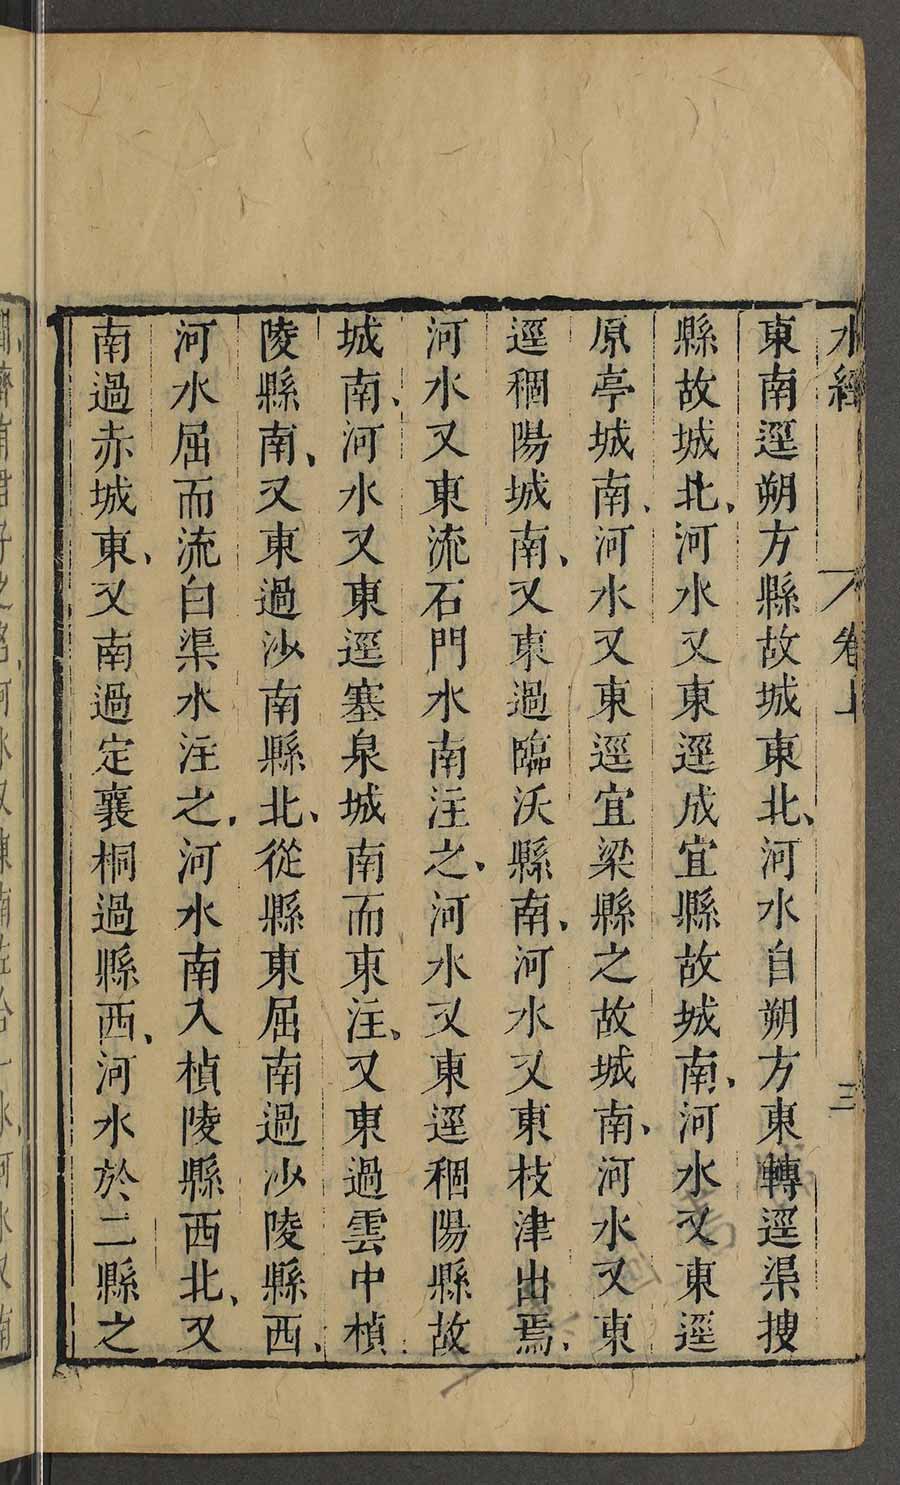 水經 卷上 三
東南逕朔方縣故城東北、河水自朔方東轉逕渠搜
縣故城北、河水又東逕成宜縣故城南、河水又東逕
原亭城南、河水又東逕宜梁縣之故城南、河水又東
逕稒陽城南、又東過臨沃縣南、河水又東枝津出焉、
河水又東流石門水南注之、河水又東逕稒陽縣故
城南、河水又東逕塞泉城南而東注、又東過雲中楨
陵縣南、又東過沙南縣北、從縣東屈南過沙陵縣西、
河水屈而流白渠水注之、河水南入楨陵縣西北、又
南過赤城東、又南過定襄桐過縣西、河水於二縣之